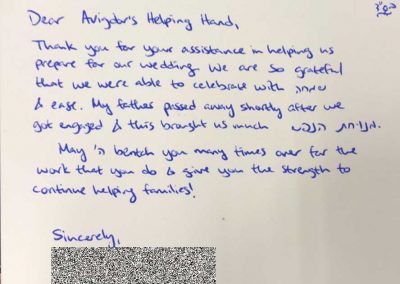 בס"ד
Dear Avigdor's Helping Hand,
Thank you for your assistance in helping us
prepare for our wedding. We are so grateful
that we were able to celebrate with שמחה
& ease. My father passed away shortly after we
got engaged & this brought us much מנוחת הנפש.
May ה' bentch you many times over for the
work that you do & give you the strength to
continue helping families!
Sincerely,